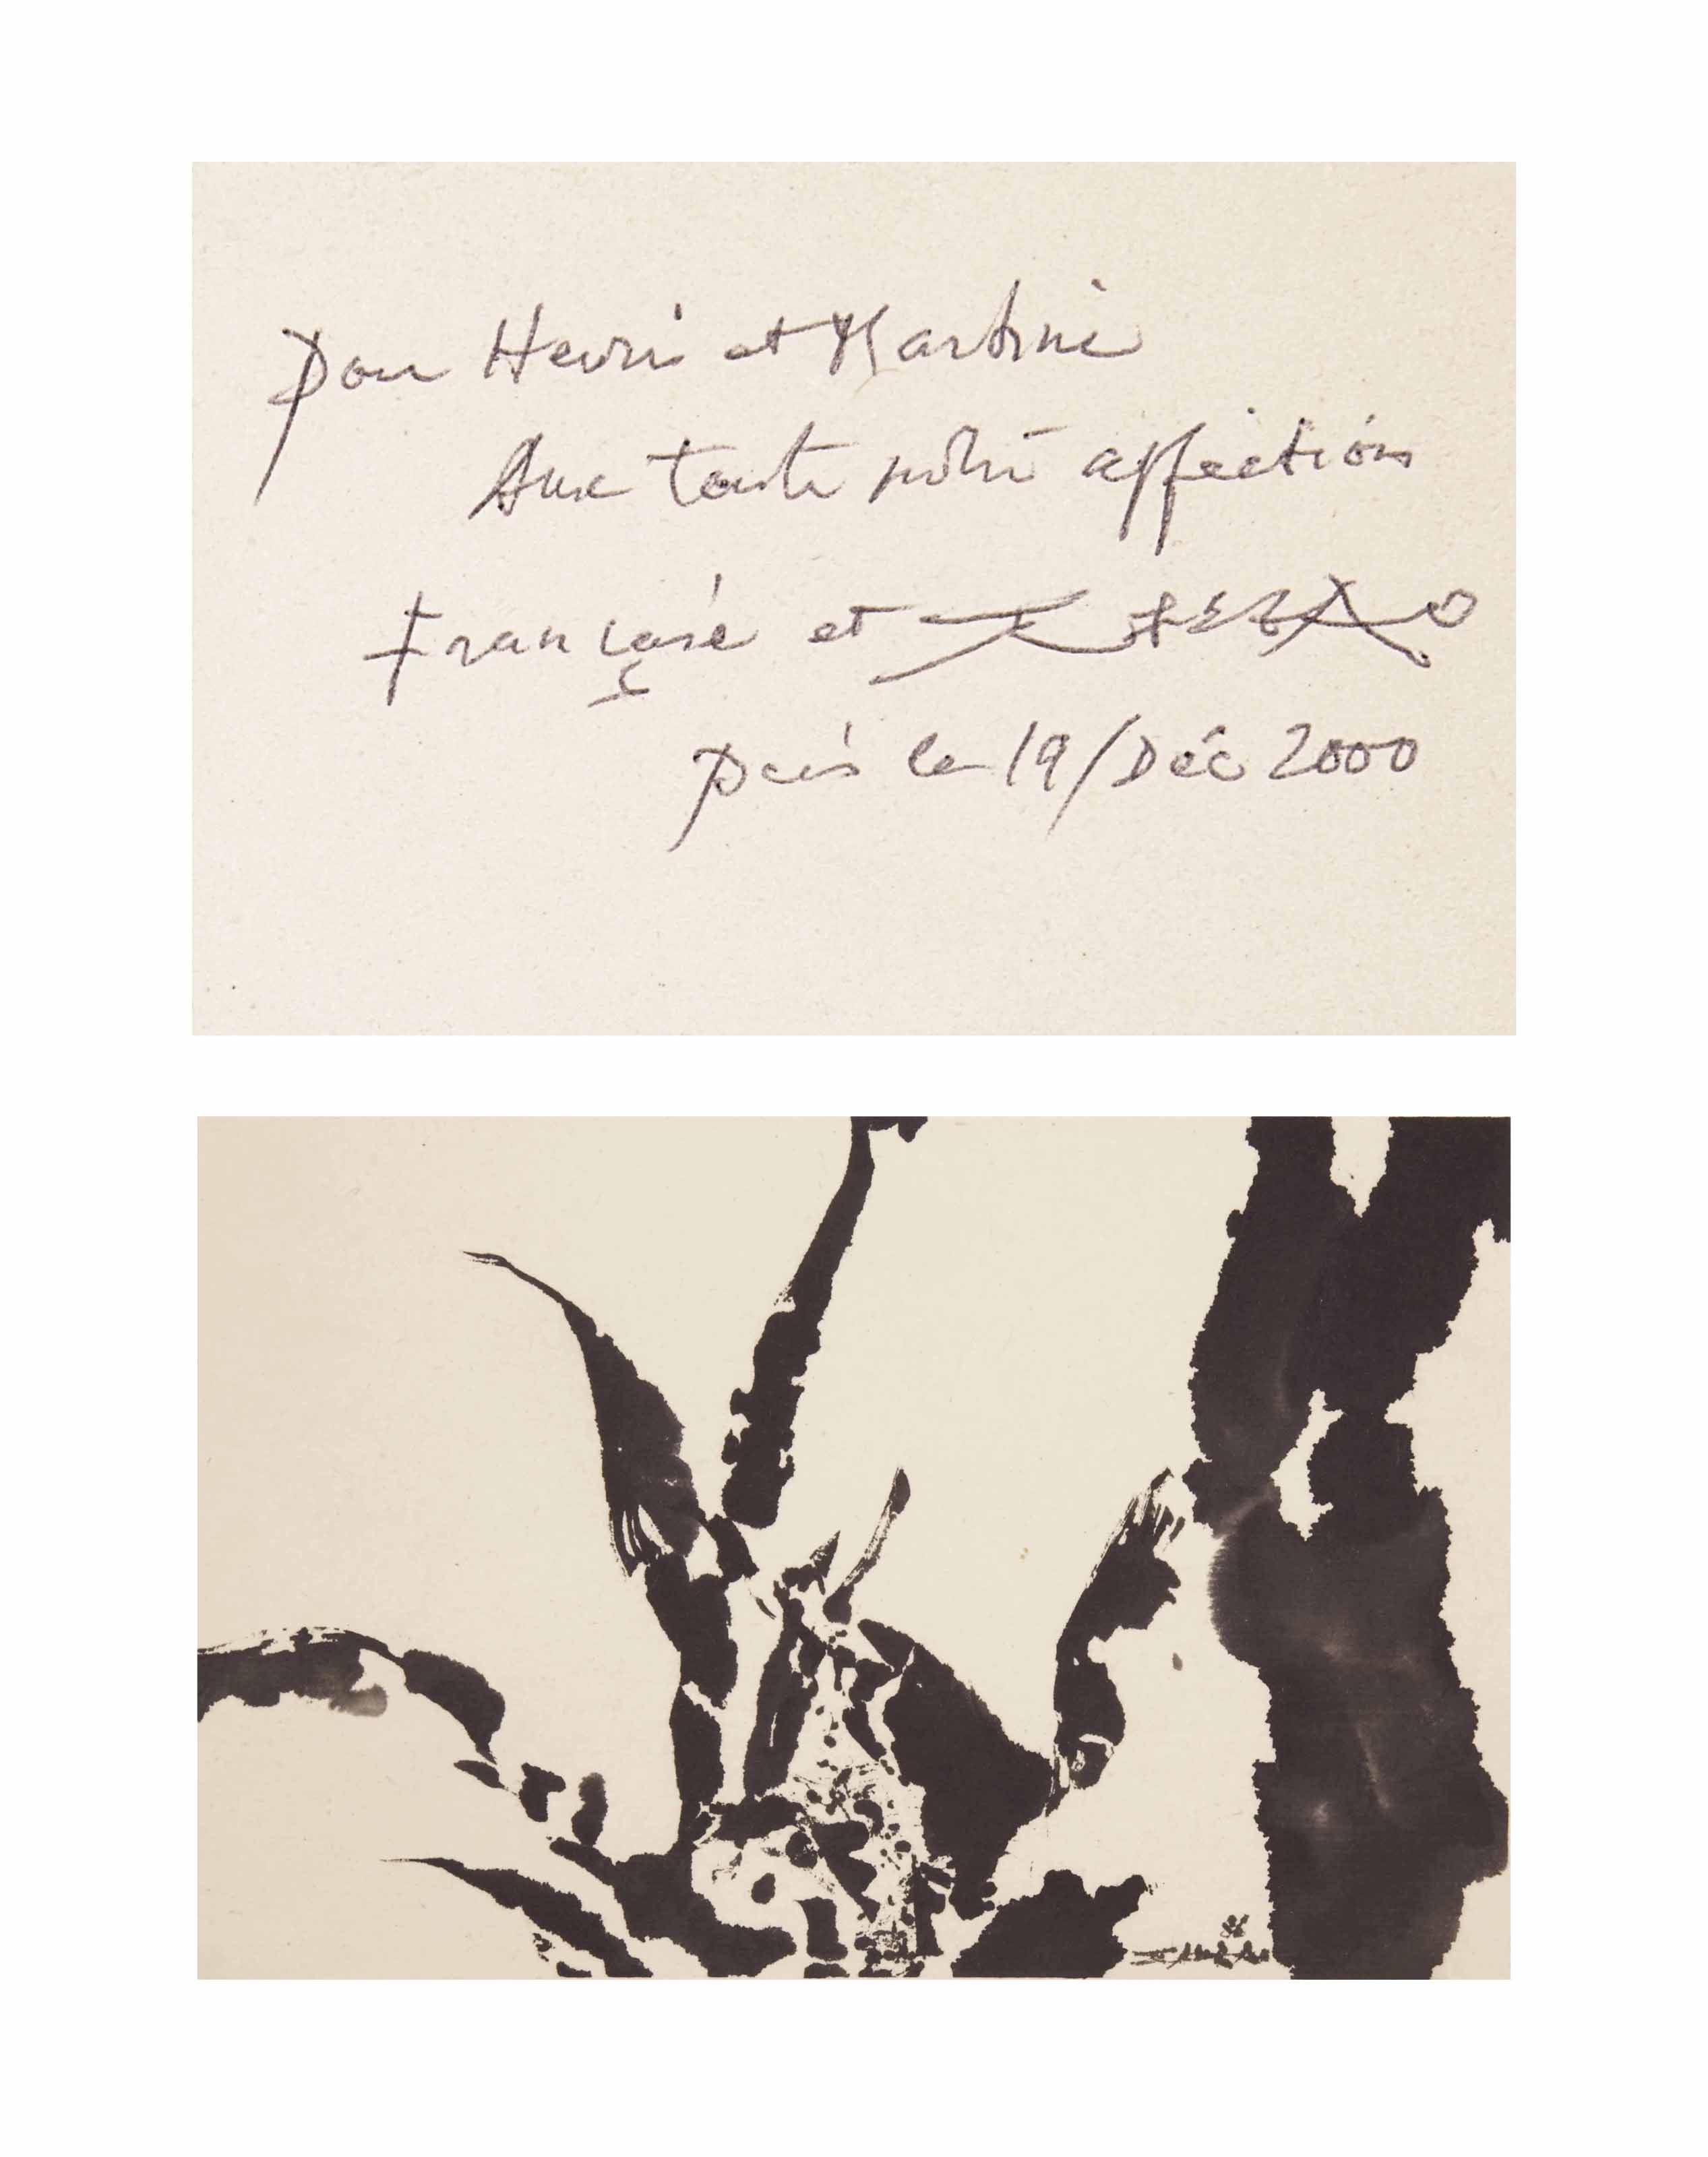 Pour Henri et Martine
Avec toute notre affection
Françoise et 无极 ZAO
Paris le 19/Déc 2000
86
无极 ZAO